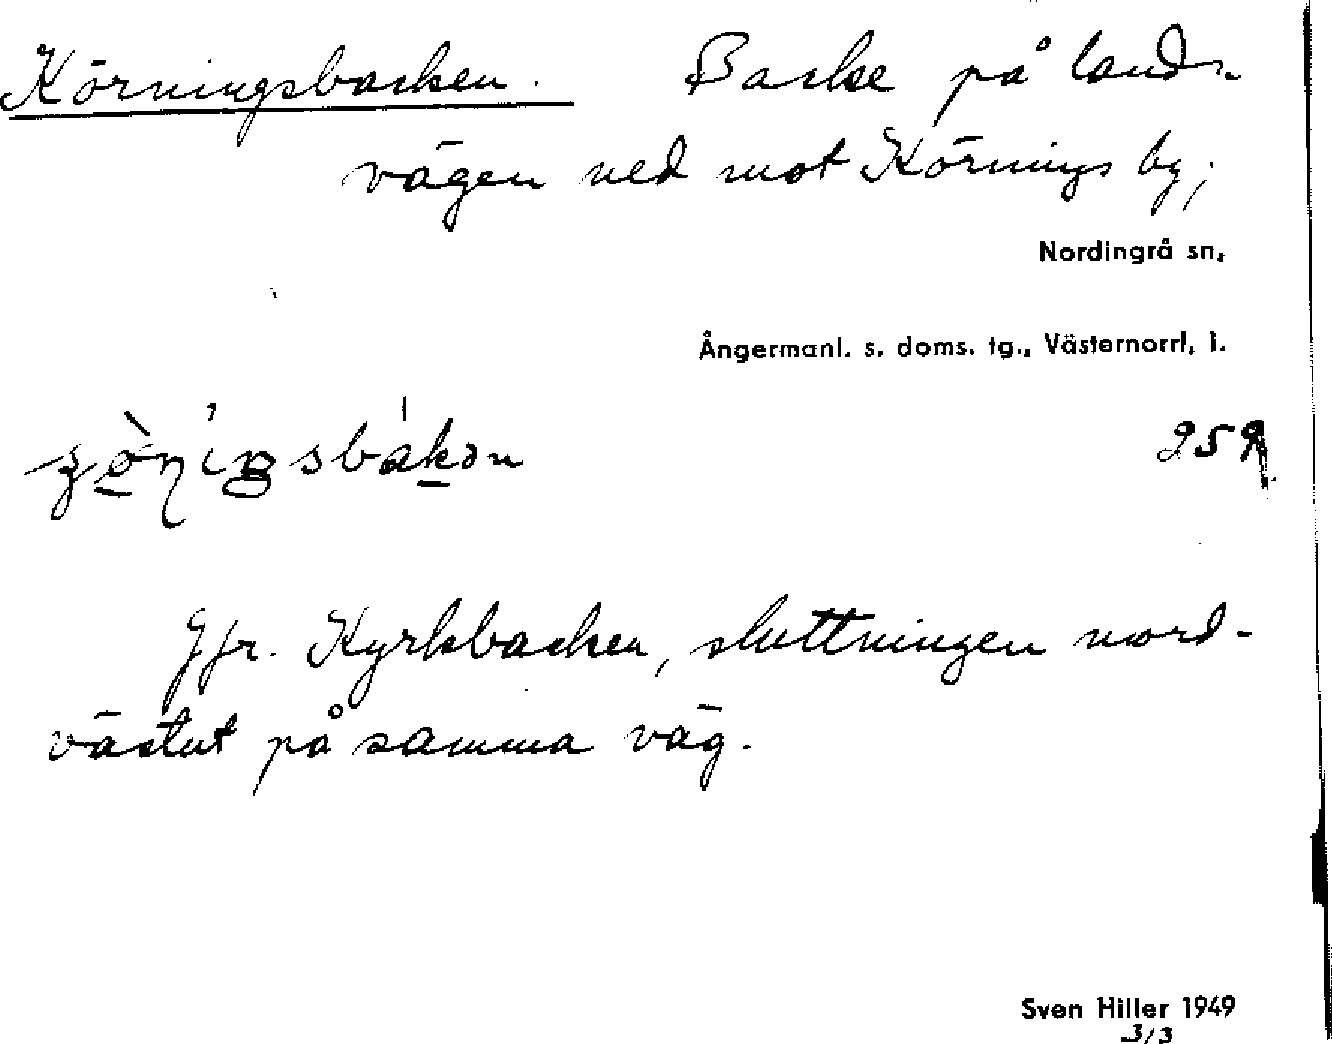 Körningsbacken. Backe på lands-
vägen ned mot Körnings by;
Nordingrå sn,
Ångermanl. s. doms. tg., Västernorrl. l.
259
Jfr. Kyrkbacken, sluttningen nord-
västut på samma väg.
Sven Hiller 1949
3/3